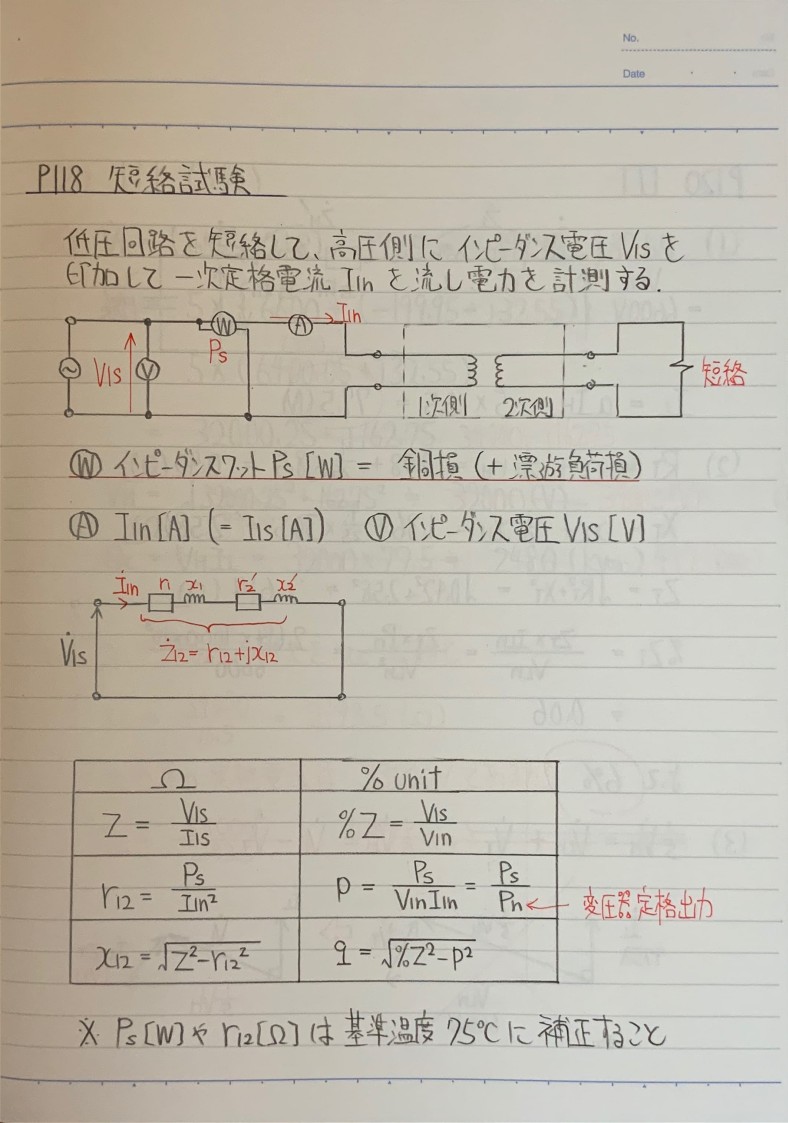 No.
Date
P118 短絡試験
低圧回路を短絡して、高圧側に インピーダンス電圧 V1s を
印加して 一次定格電流 I1n を流し電力を計測する.
I1n
W
A
Ps
V1s
V
短絡
1次側
2次側
Ⓦ インピーダンスワット Ps [W] = 銅損 (+ 漂遊負荷損)
Ⓐ I1n [A] (= I1s [A]) Ⓥ インピーダンス電圧 V1s [V]
İ1n r1 x1 r2' x2'
V̇1s
ż12 = r12 + jx12
Ω % unit
Z = V1s / I1s %Z = V1s / V1n
r12 = Ps / I1n² p = Ps / V1n I1n = Ps / Pn ← 変圧器定格出力
x12 = √Z²-r12² q = √%Z²-p²
※ Ps [W] や r12 [Ω] は 基準温度 75℃ に 補正すること